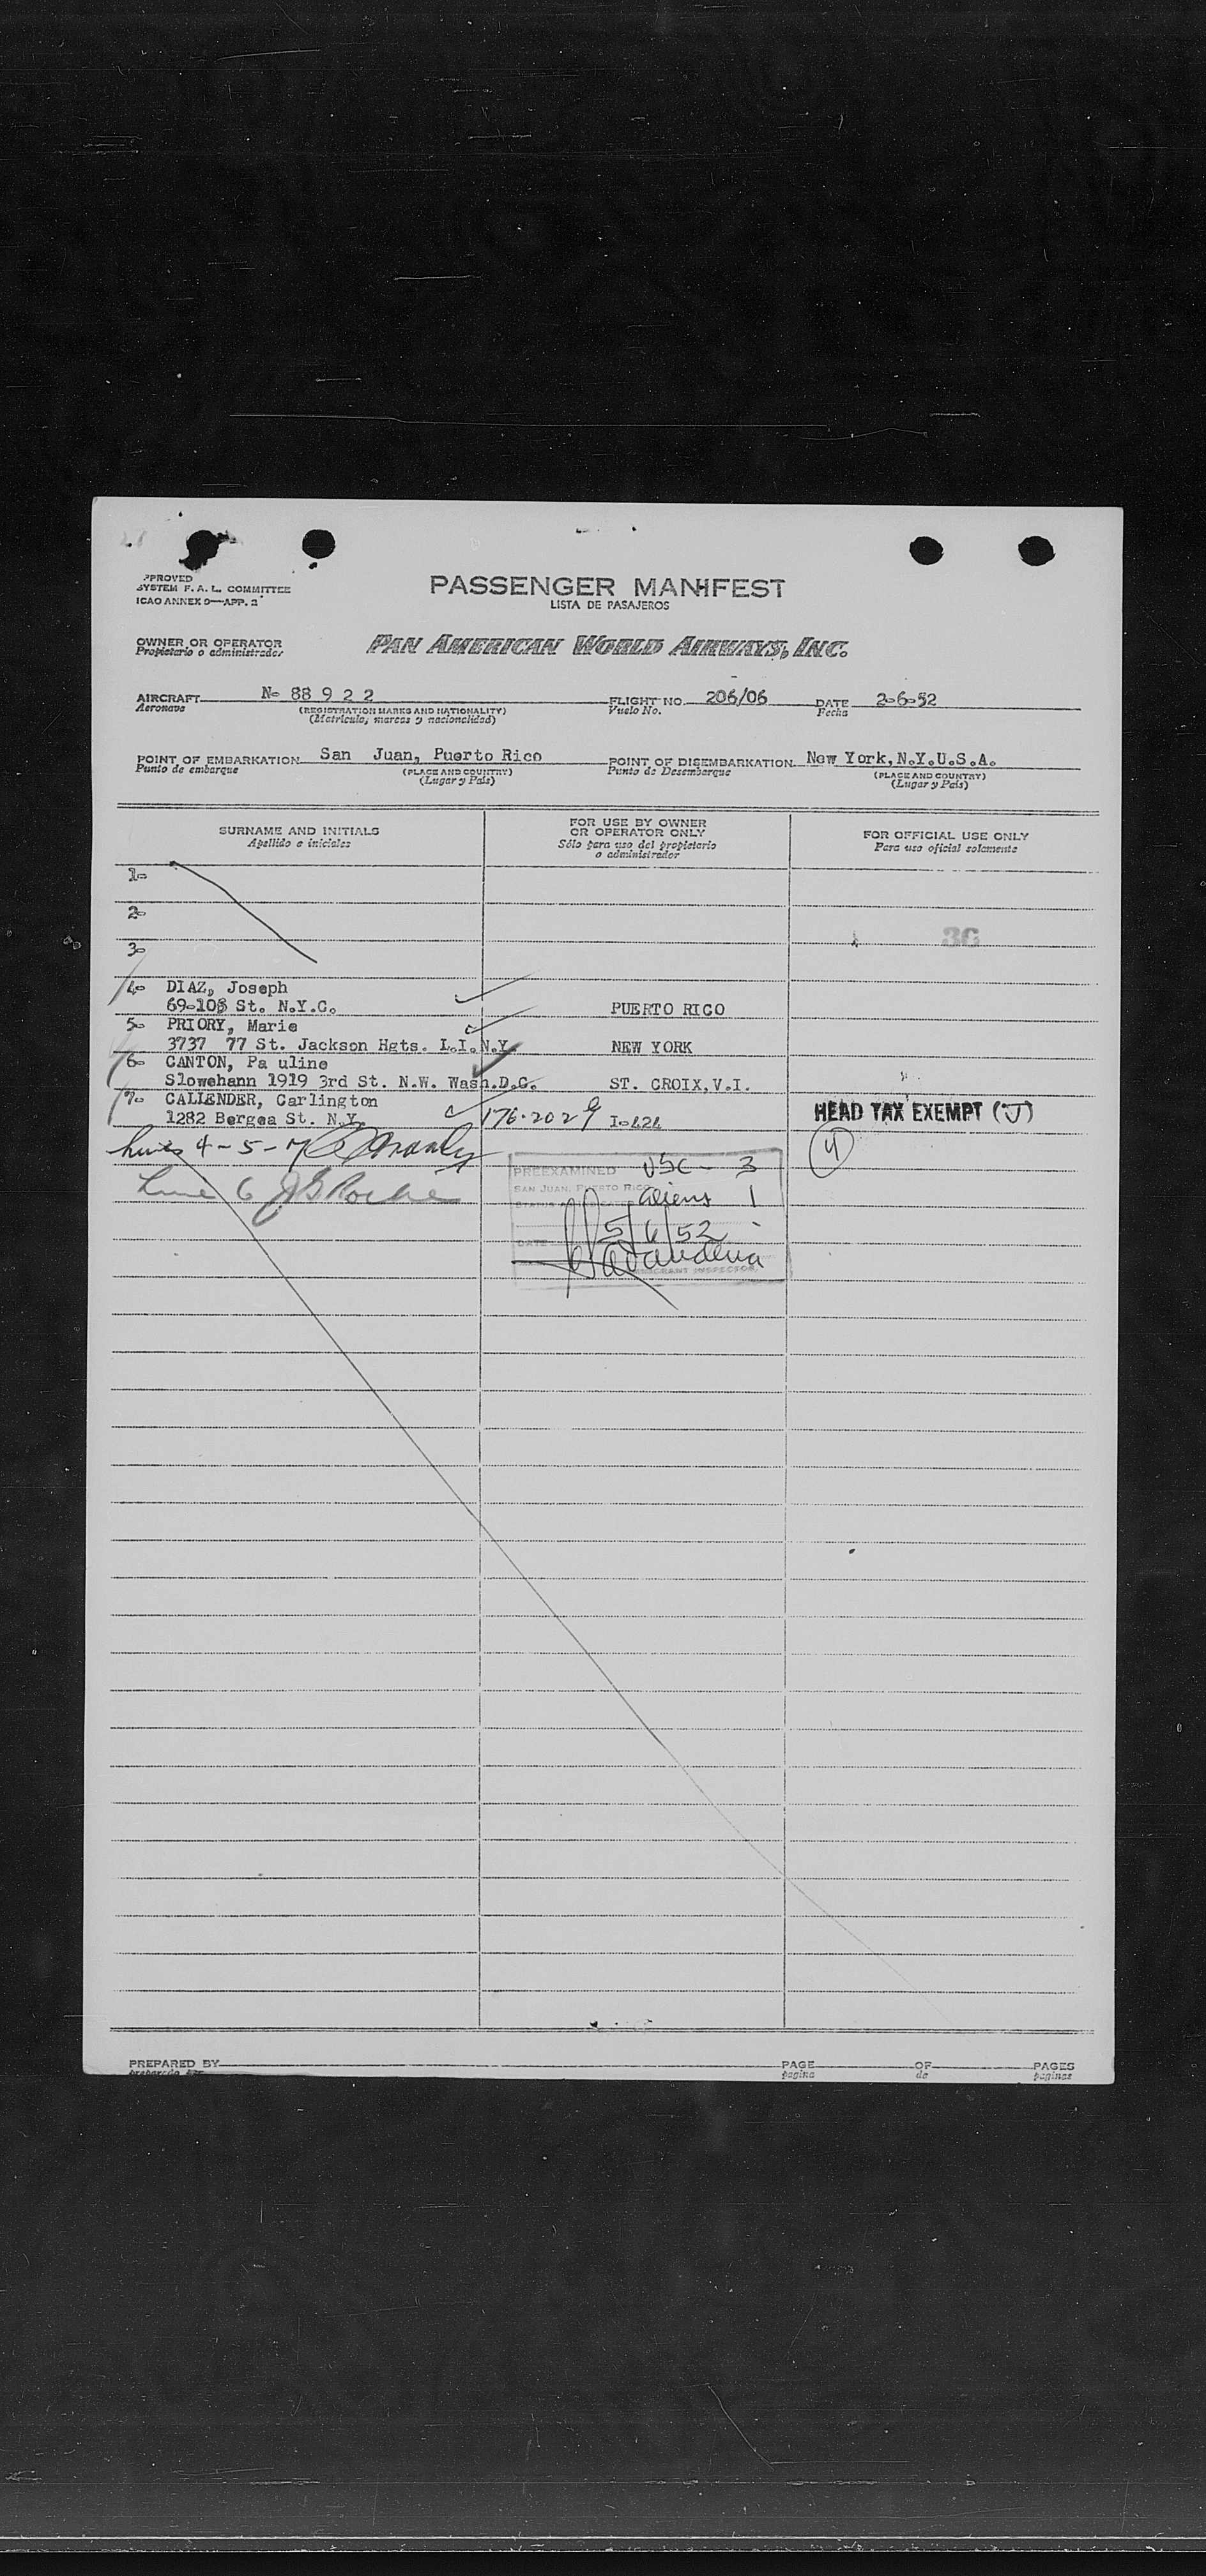 PASSENGER MANIFEST
LISTA DE PASAJEROS
SYSTEM F. A. L. COMMITTEE
ICAO ANNEX 9—APP. 2
OWNER OR OPERATOR
Propietario o administrador
PAN AMERICAN WORLD AIRWAYS, INC.
AIRCRAFT N- 88 9 2 2 FLIGHT NO. 206/06 DATE 2-6-52
Aeronave (REGISTRATION MARKS AND NATIONALITY) Vuelo No. Fecha
(Matrícula, marcas y nacionalidad)
POINT OF EMBARKATION San Juan, Puerto Rico POINT OF DISEMBARKATION New York, N.Y.U.S.A.
Punto de embarque (PLACE AND COUNTRY) Punto de Desembarque (PLACE AND COUNTRY)
(Lugar y País) (Lugar y País)
SURNAME AND INITIALS FOR USE BY OWNER OR OPERATOR ONLY FOR OFFICIAL USE ONLY
Apellido e iniciales Sólo para uso del propietario o administrador Para uso oficial solamente
1-
2-
3-
4- DIAZ, Joseph
St. N.Y.C. PUERTO RICO
5- PRIORY, Marie
3737 77 St. Jackson Hgts. L.I. N.Y. NEW YORK
6- CANTON, Pa uline
Slowehann 1919 3rd St. N.W. Wash.D.C. ST. CROIX, V.I.
7- CALLENDER, Carlington
1282 Bergea St. N.Y. 176-2029 I-424 HEAD TAX EXEMPT (J)
lines 4-5-7 4
PREEXAMINED USC - 3
SAN JUAN, PUERTO RICO
Aliens 1
Line 6 J G Roche
DATE 5/6/52
IMMIGRANT INSPECTOR
PREPARED BY PAGE OF PAGES
preparado por página de páginas